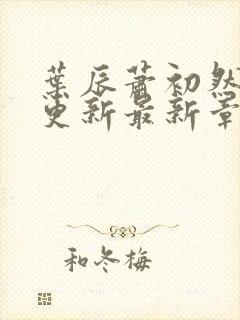 葉辰蕭初然
更新最新章
和冬梅